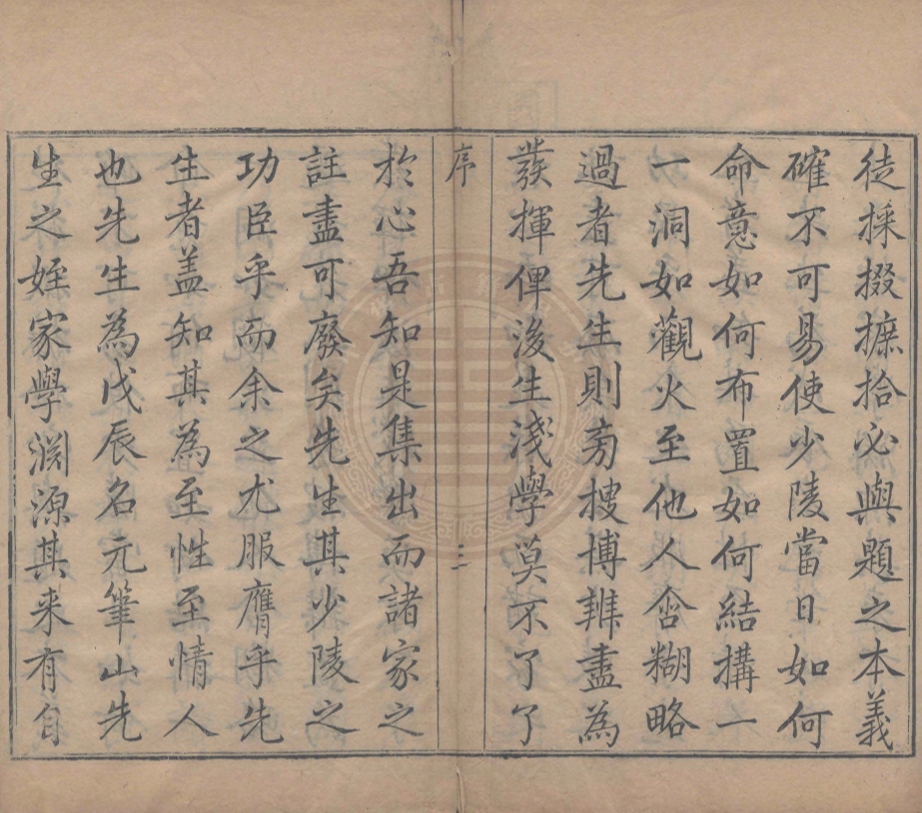 徒採掇摭拾必與題之本義
確不可易使少陵當日如何
命意如何布置如何結搆一
一洞如觀火至他人含糊略
過者先生則旁搜博辨盡為
發揮俾後生淺學莫不了了
序
二
於心吾知是集出而諸家之
註盡可廢矣先生其少陵之
功臣乎而余之尤服膺乎先
生者盖知其為至性至情人
也先生為戊辰名元筆山先
生之姪家學淵源其来有自